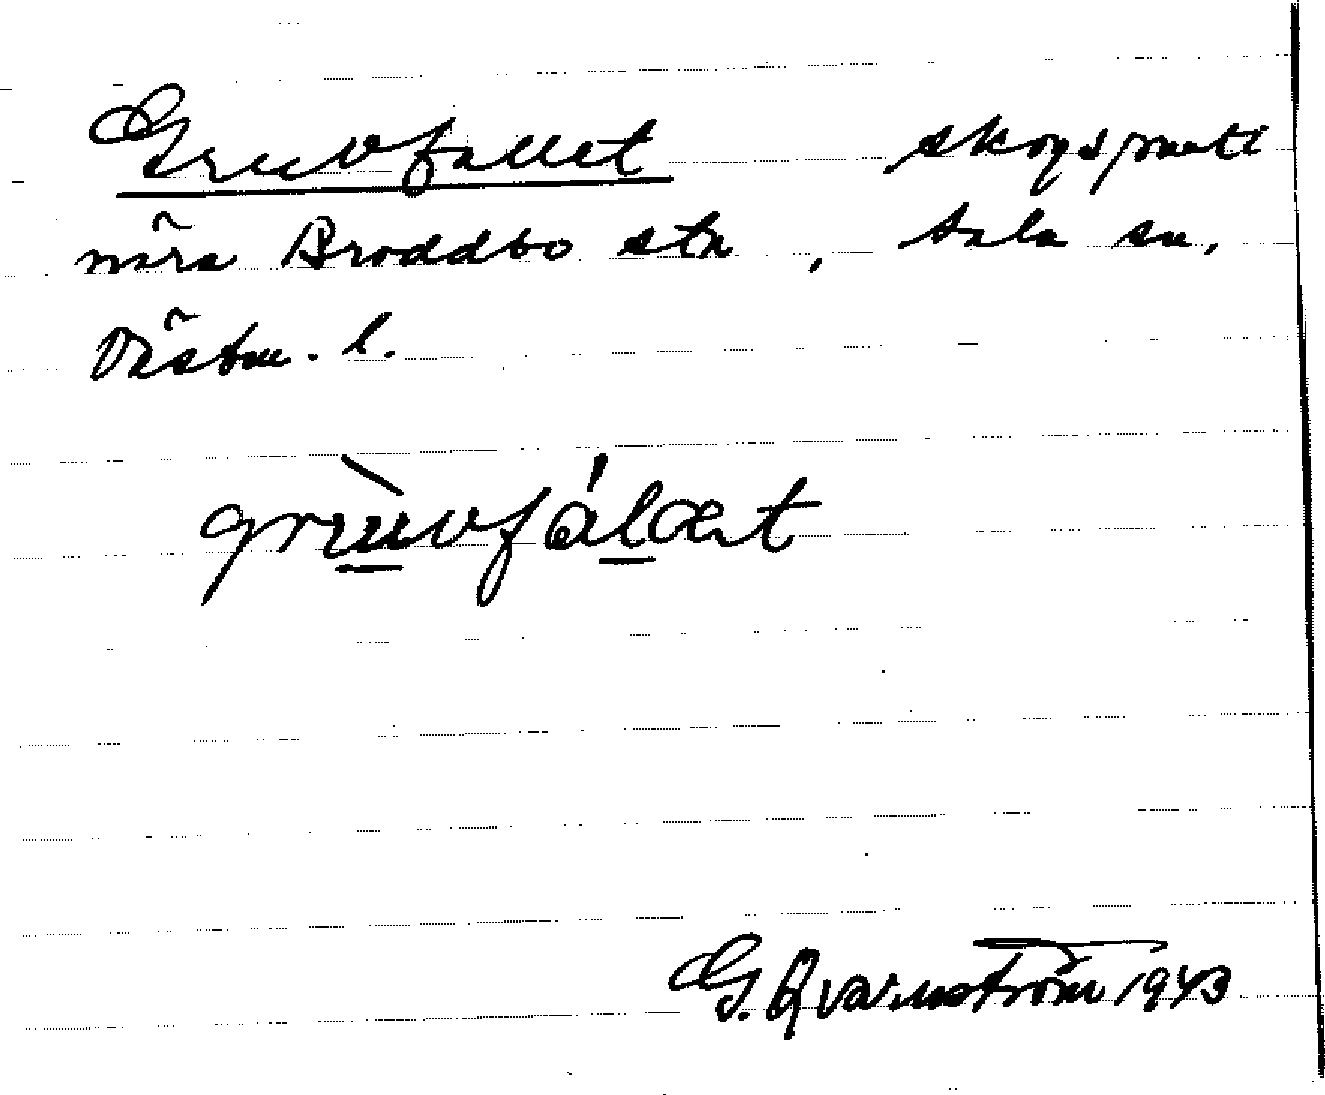 Gruvfallet skogsparti
nära Broddbo stn, Sala sn,
Västm. l.
grùvfálæt
G. Qvarnström 1943